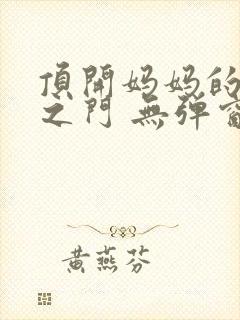 頂開妈妈的
之门 無弹窗
黄燕芬